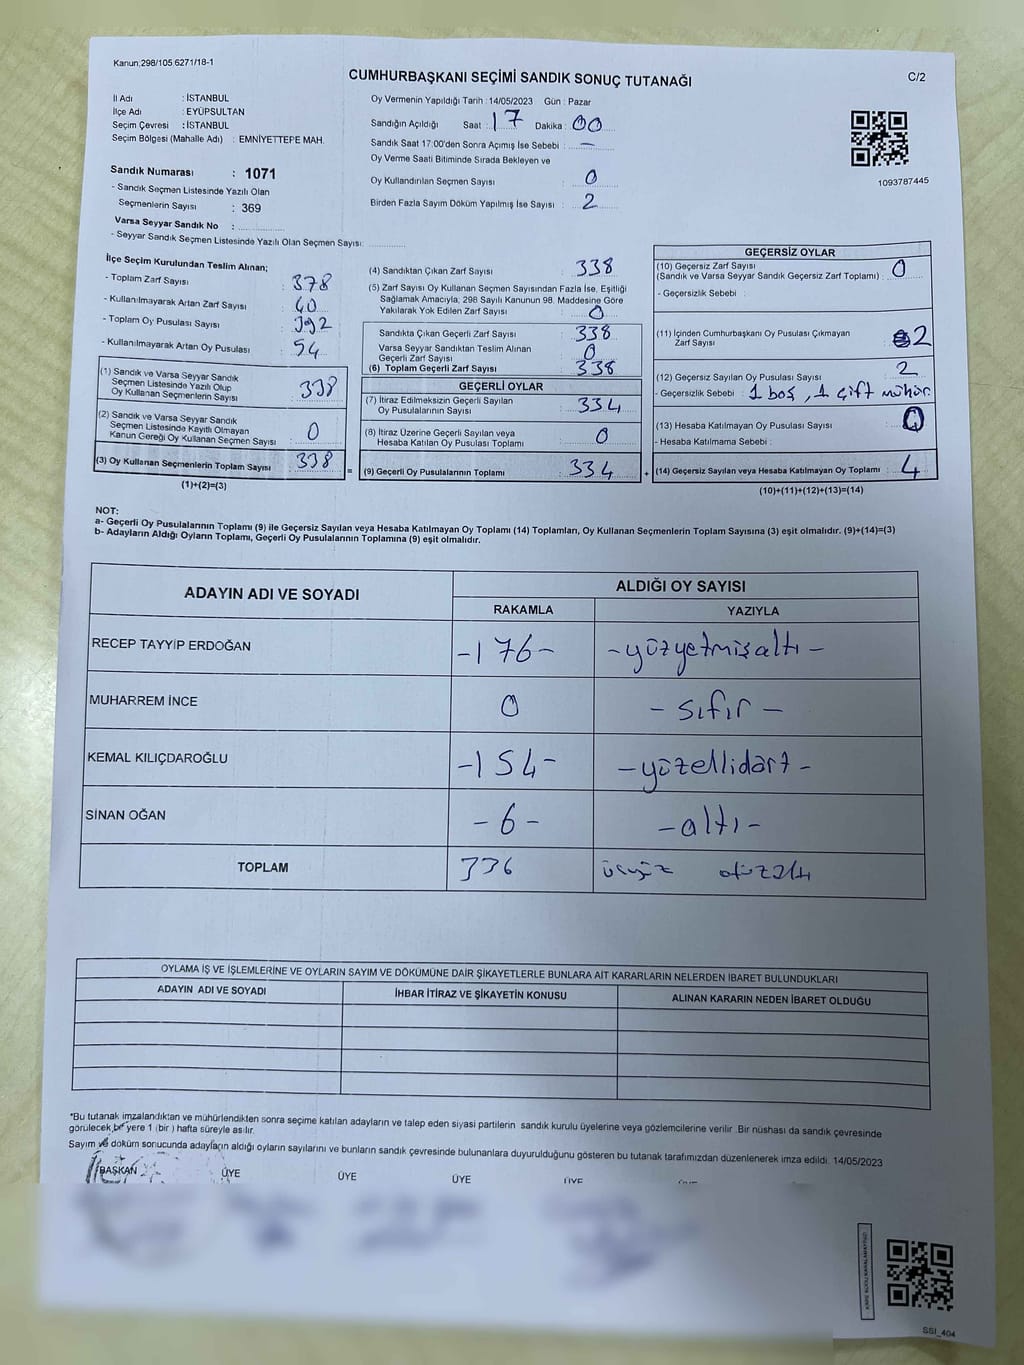 Kanun;298/105 6271/18-1
CUMHURBAŞKANI SEÇİMİ SANDIK SONUÇ TUTANAĞI
C/2
İl Adı : İSTANBUL
İlçe Adı : EYÜPSULTAN
Seçim Çevresi : İSTANBUL
Seçim Bölgesi (Mahalle Adı) : EMNİYETTEPE MAH.
Sandık Numarası : 1071
- Sandık Seçmen Listesinde Yazılı Olan
Seçmenlerin Sayısı : 369
Varsa Seyyar Sandık No :
- Seyyar Sandık Seçmen Listesinde Yazılı Olan Seçmen Sayısı:
Oy Vermenin Yapıldığı Tarih : 14/05/2023 Gün : Pazar
Sandığın Açıldığı Saat : 17 Dakika : 00
Sandık Saat 17:00'den Sonra Açımış İse Sebebi : —
Oy Verme Saati Bitiminde Sırada Bekleyen ve
Oy Kullandırılan Seçmen Sayısı : 0
Birden Fazla Sayım Döküm Yapılmış İse Sayısı : 2
1093787445
İlçe Seçim Kurulundan Teslim Alınan;
- Toplam Zarf Sayısı : 378
- Kullanılmayarak Artan Zarf Sayısı : 40
- Toplam Oy Pusulası Sayısı : 392
- Kullanılmayarak Artan Oy Pusulası : 54
(1) Sandık ve Varsa Seyyar Sandık
Seçmen Listesinde Yazılı Olup
Oy Kullanan Seçmenlerin Sayısı : 338
(2) Sandık ve Varsa Seyyar Sandık
Seçmen Listesinde Kayıtlı Olmayan
Kanun Gereği Oy Kullanan Seçmen Sayısı : 0
(3) Oy Kullanan Seçmenlerin Toplam Sayısı : 338
(1)+(2)=(3)
(4) Sandıktan Çıkan Zarf Sayısı : 338
(5) Zarf Sayısı Oy Kullanan Seçmen Sayısından Fazla İse, Eşitliği
Sağlamak Amacıyla, 298 Sayılı Kanunun 98. Maddesine Göre
Yakılarak Yok Edilen Zarf Sayısı : 0
Sandıkta Çıkan Geçerli Zarf Sayısı : 338
Varsa Seyyar Sandıktan Teslim Alınan
Geçerli Zarf Sayısı : 0
(6) Toplam Geçerli Zarf Sayısı : 338
GEÇERLİ OYLAR
(7) İtiraz Edilmeksizin Geçerli Sayılan
Oy Pusulalarının Sayısı : 334
(8) İtiraz Üzerine Geçerli Sayılan veya
Hesaba Katılan Oy Pusulası Toplamı : 0
= (9) Geçerli Oy Pusulalarının Toplamı : 334 +
GEÇERSİZ OYLAR
(10) Geçersiz Zarf Sayısı
(Sandık ve Varsa Seyyar Sandık Geçersiz Zarf Toplamı) : 0
- Geçersizlik Sebebi :
(11) İçinden Cumhurbaşkanı Oy Pusulası Çıkmayan
Zarf Sayısı : 2
(12) Geçersiz Sayılan Oy Pusulası Sayısı : 2
- Geçersizlik Sebebi : 1 boş, 1 çift mühür.
(13) Hesaba Katılmayan Oy Pusulası Sayısı : 0
- Hesaba Katılmama Sebebi :
(14) Geçersiz Sayılan veya Hesaba Katılmayan Oy Toplamı : 4
(10)+(11)+(12)+(13)=(14)
NOT:
a- Geçerli Oy Pusulalarının Toplamı (9) ile Geçersiz Sayılan veya Hesaba Katılmayan Oy Toplamı (14) Toplamları, Oy Kullanan Seçmenlerin Toplam Sayısına (3) eşit olmalıdır. (9)+(14)=(3)
b- Adayların Aldığı Oyların Toplamı, Geçerli Oy Pusulalarının Toplamına (9) eşit olmalıdır.
ADAYIN ADI VE SOYADI
ALDIĞI OY SAYISI
RAKAMLA YAZIYLA
RECEP TAYYİP ERDOĞAN -176- -yüzyetmişaltı-
MUHARREM İNCE 0 -sıfır-
KEMAL KILIÇDAROĞLU -154- -yüzellidört-
SİNAN OĞAN -6- -altı-
TOPLAM 336 üçyüz otuzaltı
OYLAMA İŞ VE İŞLEMLERİNE VE OYLARIN SAYIM VE DÖKÜMÜNE DAİR ŞİKAYETLERLE BUNLARA AİT KARARLARIN NELERDEN İBARET BULUNDUKLARI
ADAYIN ADI VE SOYADI İHBAR İTİRAZ VE ŞİKAYETİN KONUSU ALINAN KARARIN NEDEN İBARET OLDUĞU
*Bu tutanak imzalandıktan ve mühürlendikten sonra seçime katılan adayların ve talep eden siyasi partilerin sandık kurulu üyelerine veya gözlemcilerine verilir .Bir nüshası da sandık çevresinde
görülecek bir yere 1 (bir ) hafta süreyle asılır.
Sayım ve döküm sonucunda adayların aldığı oyların sayılarını ve bunların sandık çevresinde bulunanlara duyurulduğunu gösteren bu tutanak tarafımızdan düzenlenerek imza edildi. 14/05/2023
BAŞKAN ÜYE ÜYE ÜYE ÜYE
SSI_404